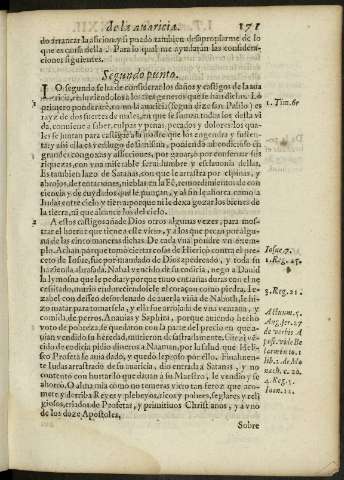 de la auaricia. 171
do arrancar la aficion, y si puedo tambien desapropiarme de lo
que es causa della. Para lo qual me ayudaràn las considera-
ciones siguientes.
Segundo punto.
LO segundo se ha de considerar los daños y castigos de la aua
ricia, reduziendolos a los
1 primero ponderare, como la auaricia (segun dize san Pablo) es
rayz de dos suertes de males, en que se suman todos los desta vi
da, conuiene a saber, culpas y penas, pecados y dolores: los qua-
les se juntan para castigar a la mesma que los engendra y susten-
ta: y assi ella es verdugo de si misma, poniendo al codicioso en
grandes congoxas y aflicciones, por ganar, o por conseruar sus
riquezas, con vna miserable seruidumbre y esclauonia dellas.
Es tambien lazo de Satanas, con que le arrastra por espinas, y
abrojos, de tentaciones, nieblas en la Fè, remordimientos de con
ciencia y de cuydados que le punçan, y al fin le ahorca como a
Iudas entre cielo y tierra: porque ni le dexa gozar los bienes de
la tierra, ni que alcance los del cielo.
2 A estos castigos añade Dios otros algunas vezes, para mos-
trar el horror que tiene a este vicio, y a los que pecan por algu-
na de las cinco maneras dichas. De cada vna pondre vn exem-
plo. Achan porque tomò ciertas cosas de Hiericò contra el pre-
cepto de Iosue, fue por mandado de Dios apedreado, y toda su
hazienda abrasada. Nabal vencido de su codicia, nego a Dauid
la lymosna que le pedia: y porque tuuo entrañas duras con el ne
cessitado, murio endureciendosele el coraçon como piedra. Ie-
zabel con desseo desordenado de auer la viña de Naboth, le hi-
zo matar para tomarsela, y ella fue arrojada de vna ventana, y
comida de perros. Ananias y Saphira, porque auiendo hecho
voto de pobreza, se quedaron con la parte del precio en que a-
uian vendido su heredad, murieron desastradamente. Giezi vẽ-
cido de codicia pidio dineros a Naaman, por la salud que Heli-
seo Profeta le auia dado, y quedò leproso por ello. Finalmen-
te Iudas arrastrado de su auaricia, dio entrada a Satanas, y no
contento con hurtar lo que dauan a su Maestro, le vendio y se
ahorcò. O alma mia como no temeras vicio tan feroz que aco-
mete, y derriba Reyes y plebeyos, ricos y pobres, seglares y reli-
giosos, criados de Profetas, y primitiuos Christianos, y a vno
de los doze Apostoles,
Sobre
1. Tim. 6.
Iosue. 7.
1. Reg. 25.
3. Reg. 21.
Actuum. 5.
Aug. ser. 27
de verbis A
post. vide Be
larmino to. 1
lib. 2. de Mo
nach. c. 20.
4. Reg. 5
Ioan. 12.